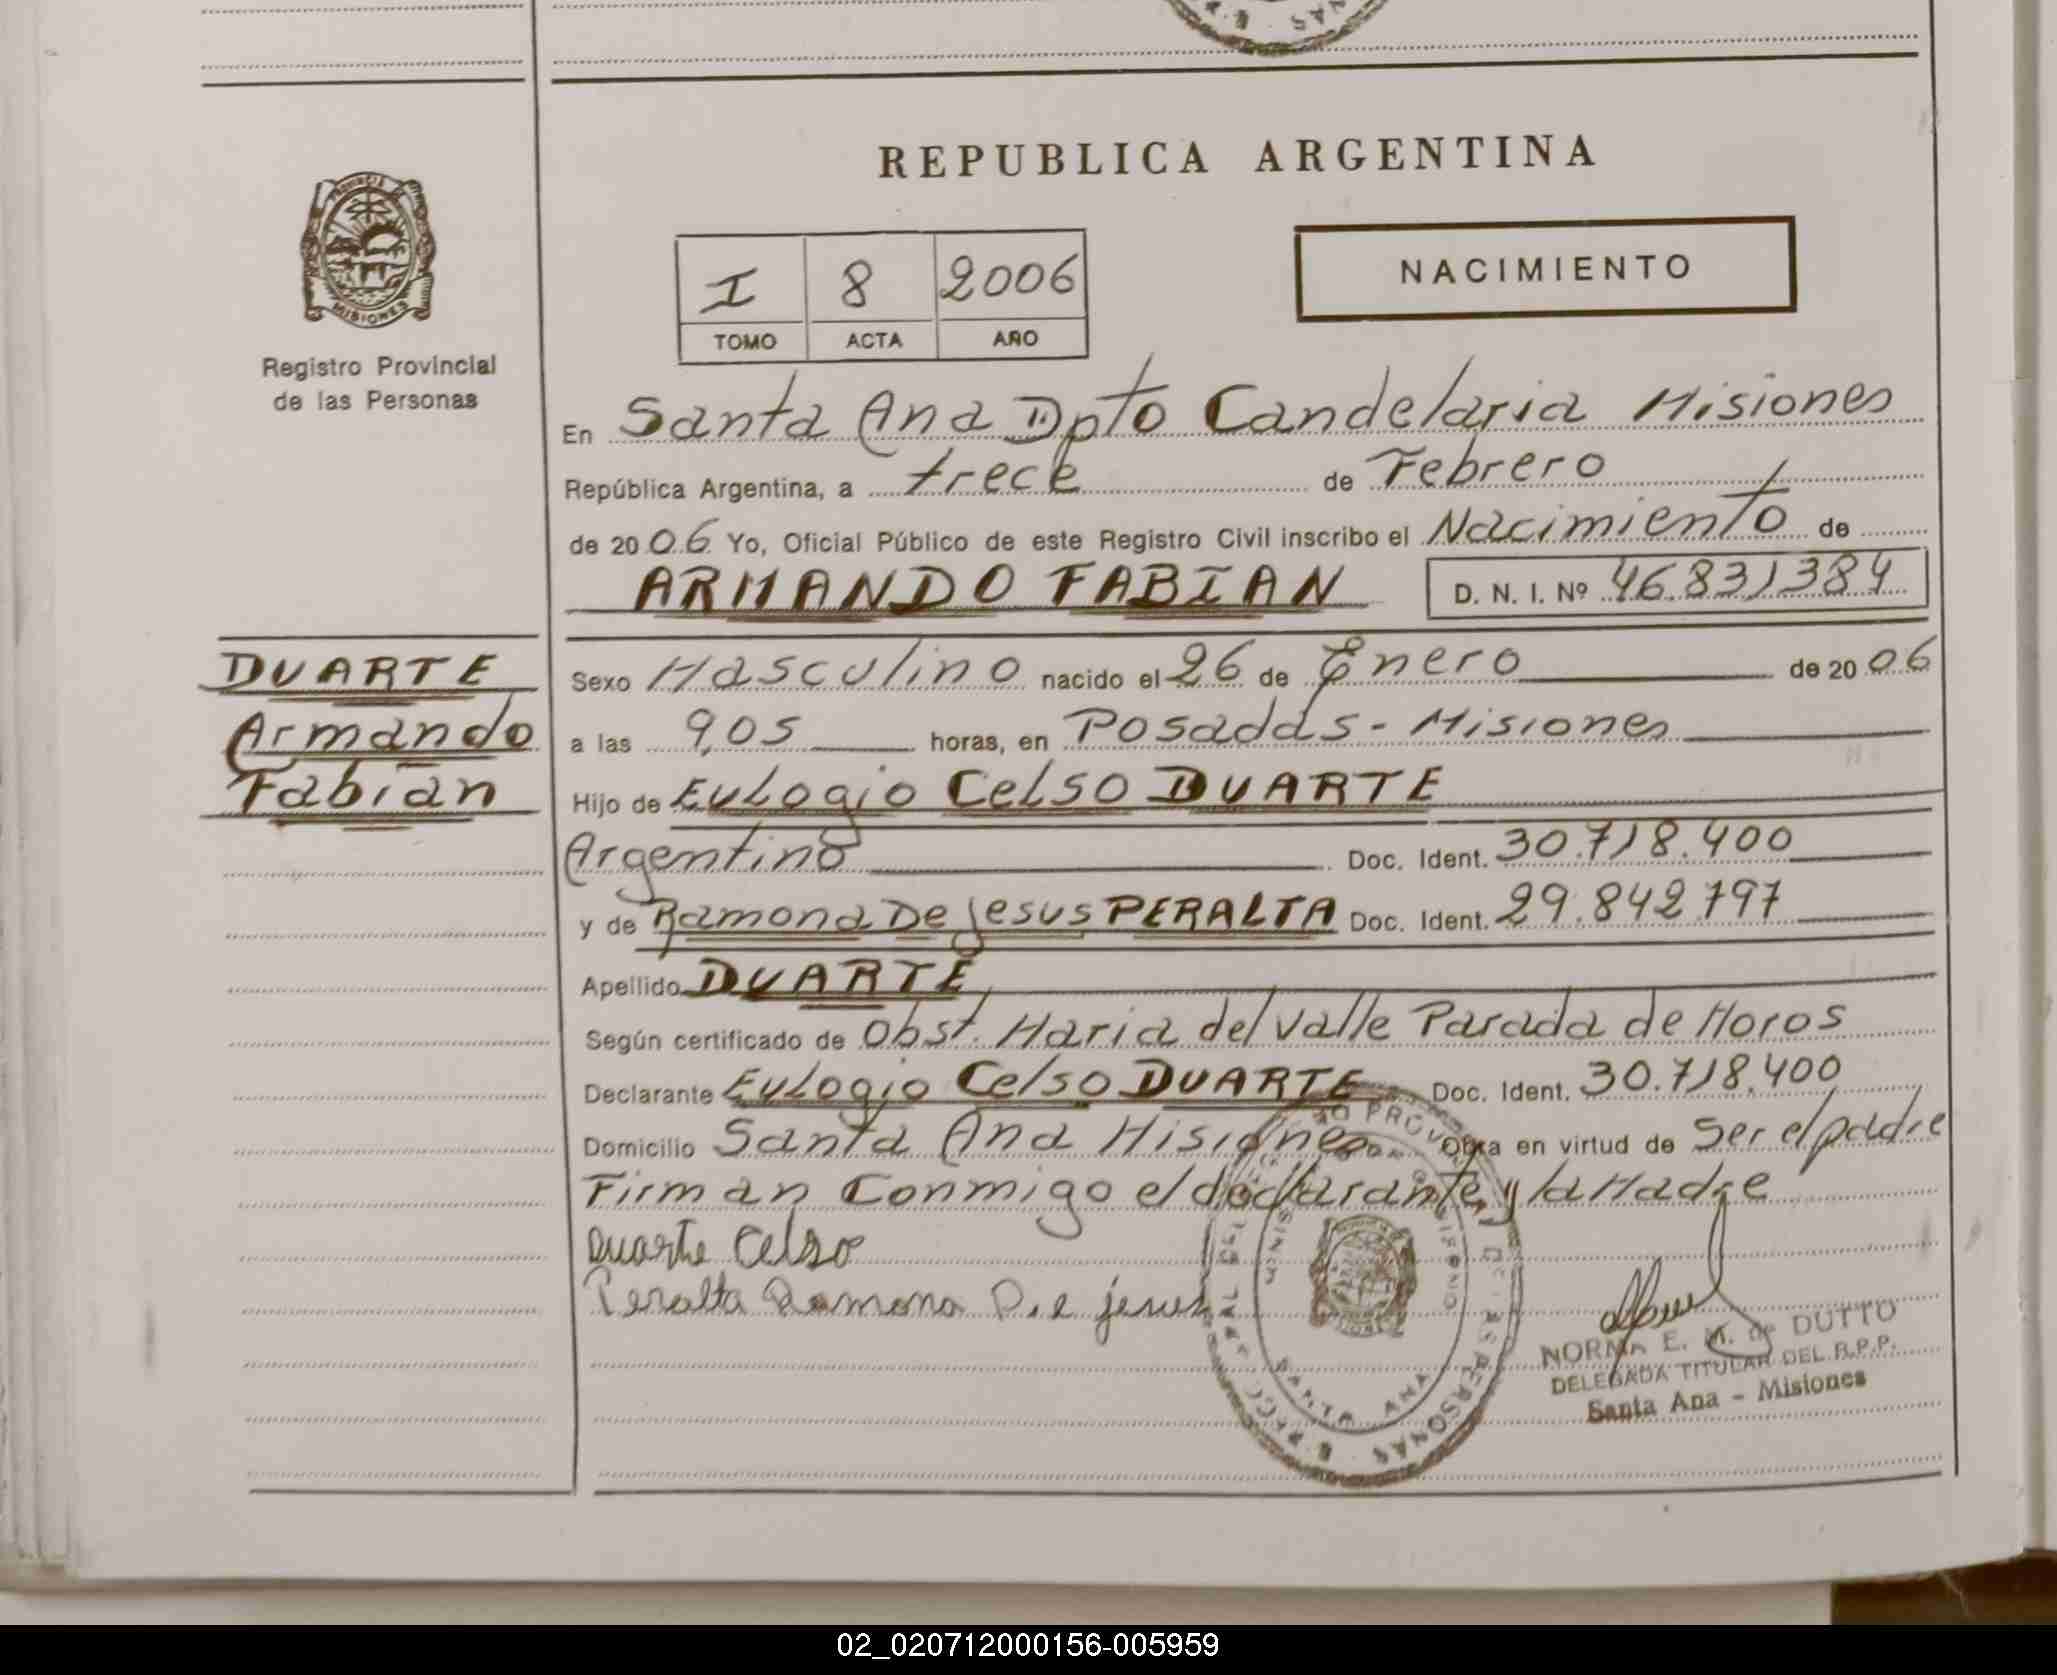 REPUBLICA ARGENTINA
NACIMIENTO
I 8 2006
TOMO ACTA AÑO
PROVINCIA
MISIONES
Registro Provincial
de las Personas
En Santa Ana Dpto Candelaria Misiones
República Argentina, a trece de Febrero
de 2006 Yo, Oficial Público de este Registro Civil inscribo el Nacimiento de
ARMANDO FABIAN D. N. I. Nº 46.831384
DUARTE
Armando
Fabian
Sexo Masculino nacido el 26 de Enero de 2006
a las 9,05 horas, en Posadas - Misiones
Hijo de Eulogio Celso DUARTE
Argentino Doc. Ident. 30.718.400
y de Ramona De Jesus PERALTA Doc. Ident. 29.842.797
Apellido DUARTE
Según certificado de Obst. Maria del Valle Parada de Moros
Declarante Eulogio Celso DUARTE Doc. Ident. 30.718.400
Domicilio Santa Ana Misiones Obra en virtud de Ser el padre
Firman Conmigo el declarante y la Madre
Duarte Celso
Peralta Ramona D.e jesus
SANTA ANA
NORMA E. M. de DUTTO
DELEGADA TITULAR DEL R.P.P.
Santa Ana - Misiones
02_020712000156-005959